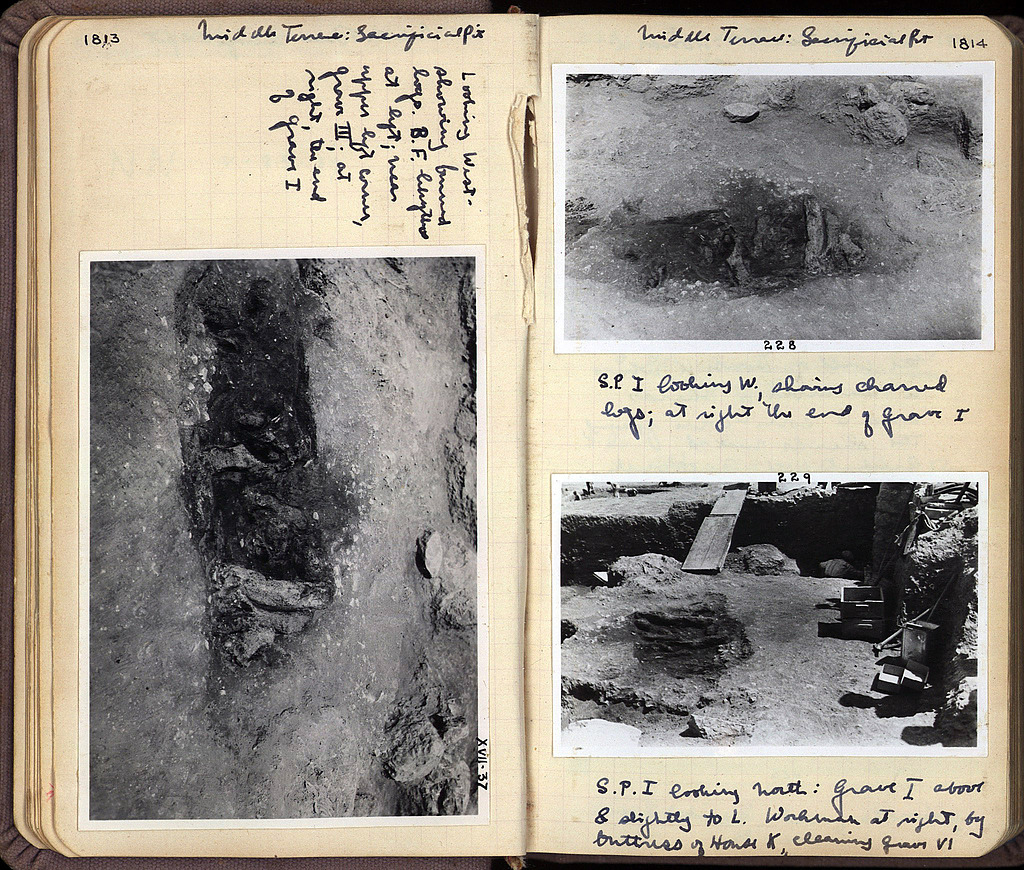 1813
Middle Terrace: Sacrificial Pit
Looking West-
showing burned
logs. B.F. lekythos
at left; near
upper left corner,
grave III; at
right, the end
of grave I
XVII-37
Middle Terrace: Sacrificial Pit
1814
228
S.P. I looking W., showing charred
logs; at right the end of Grave I
229
S.P. I looking North: Grave I above
& slightly to L. Workman at right, by
buttress of House K, cleaning Grave VI